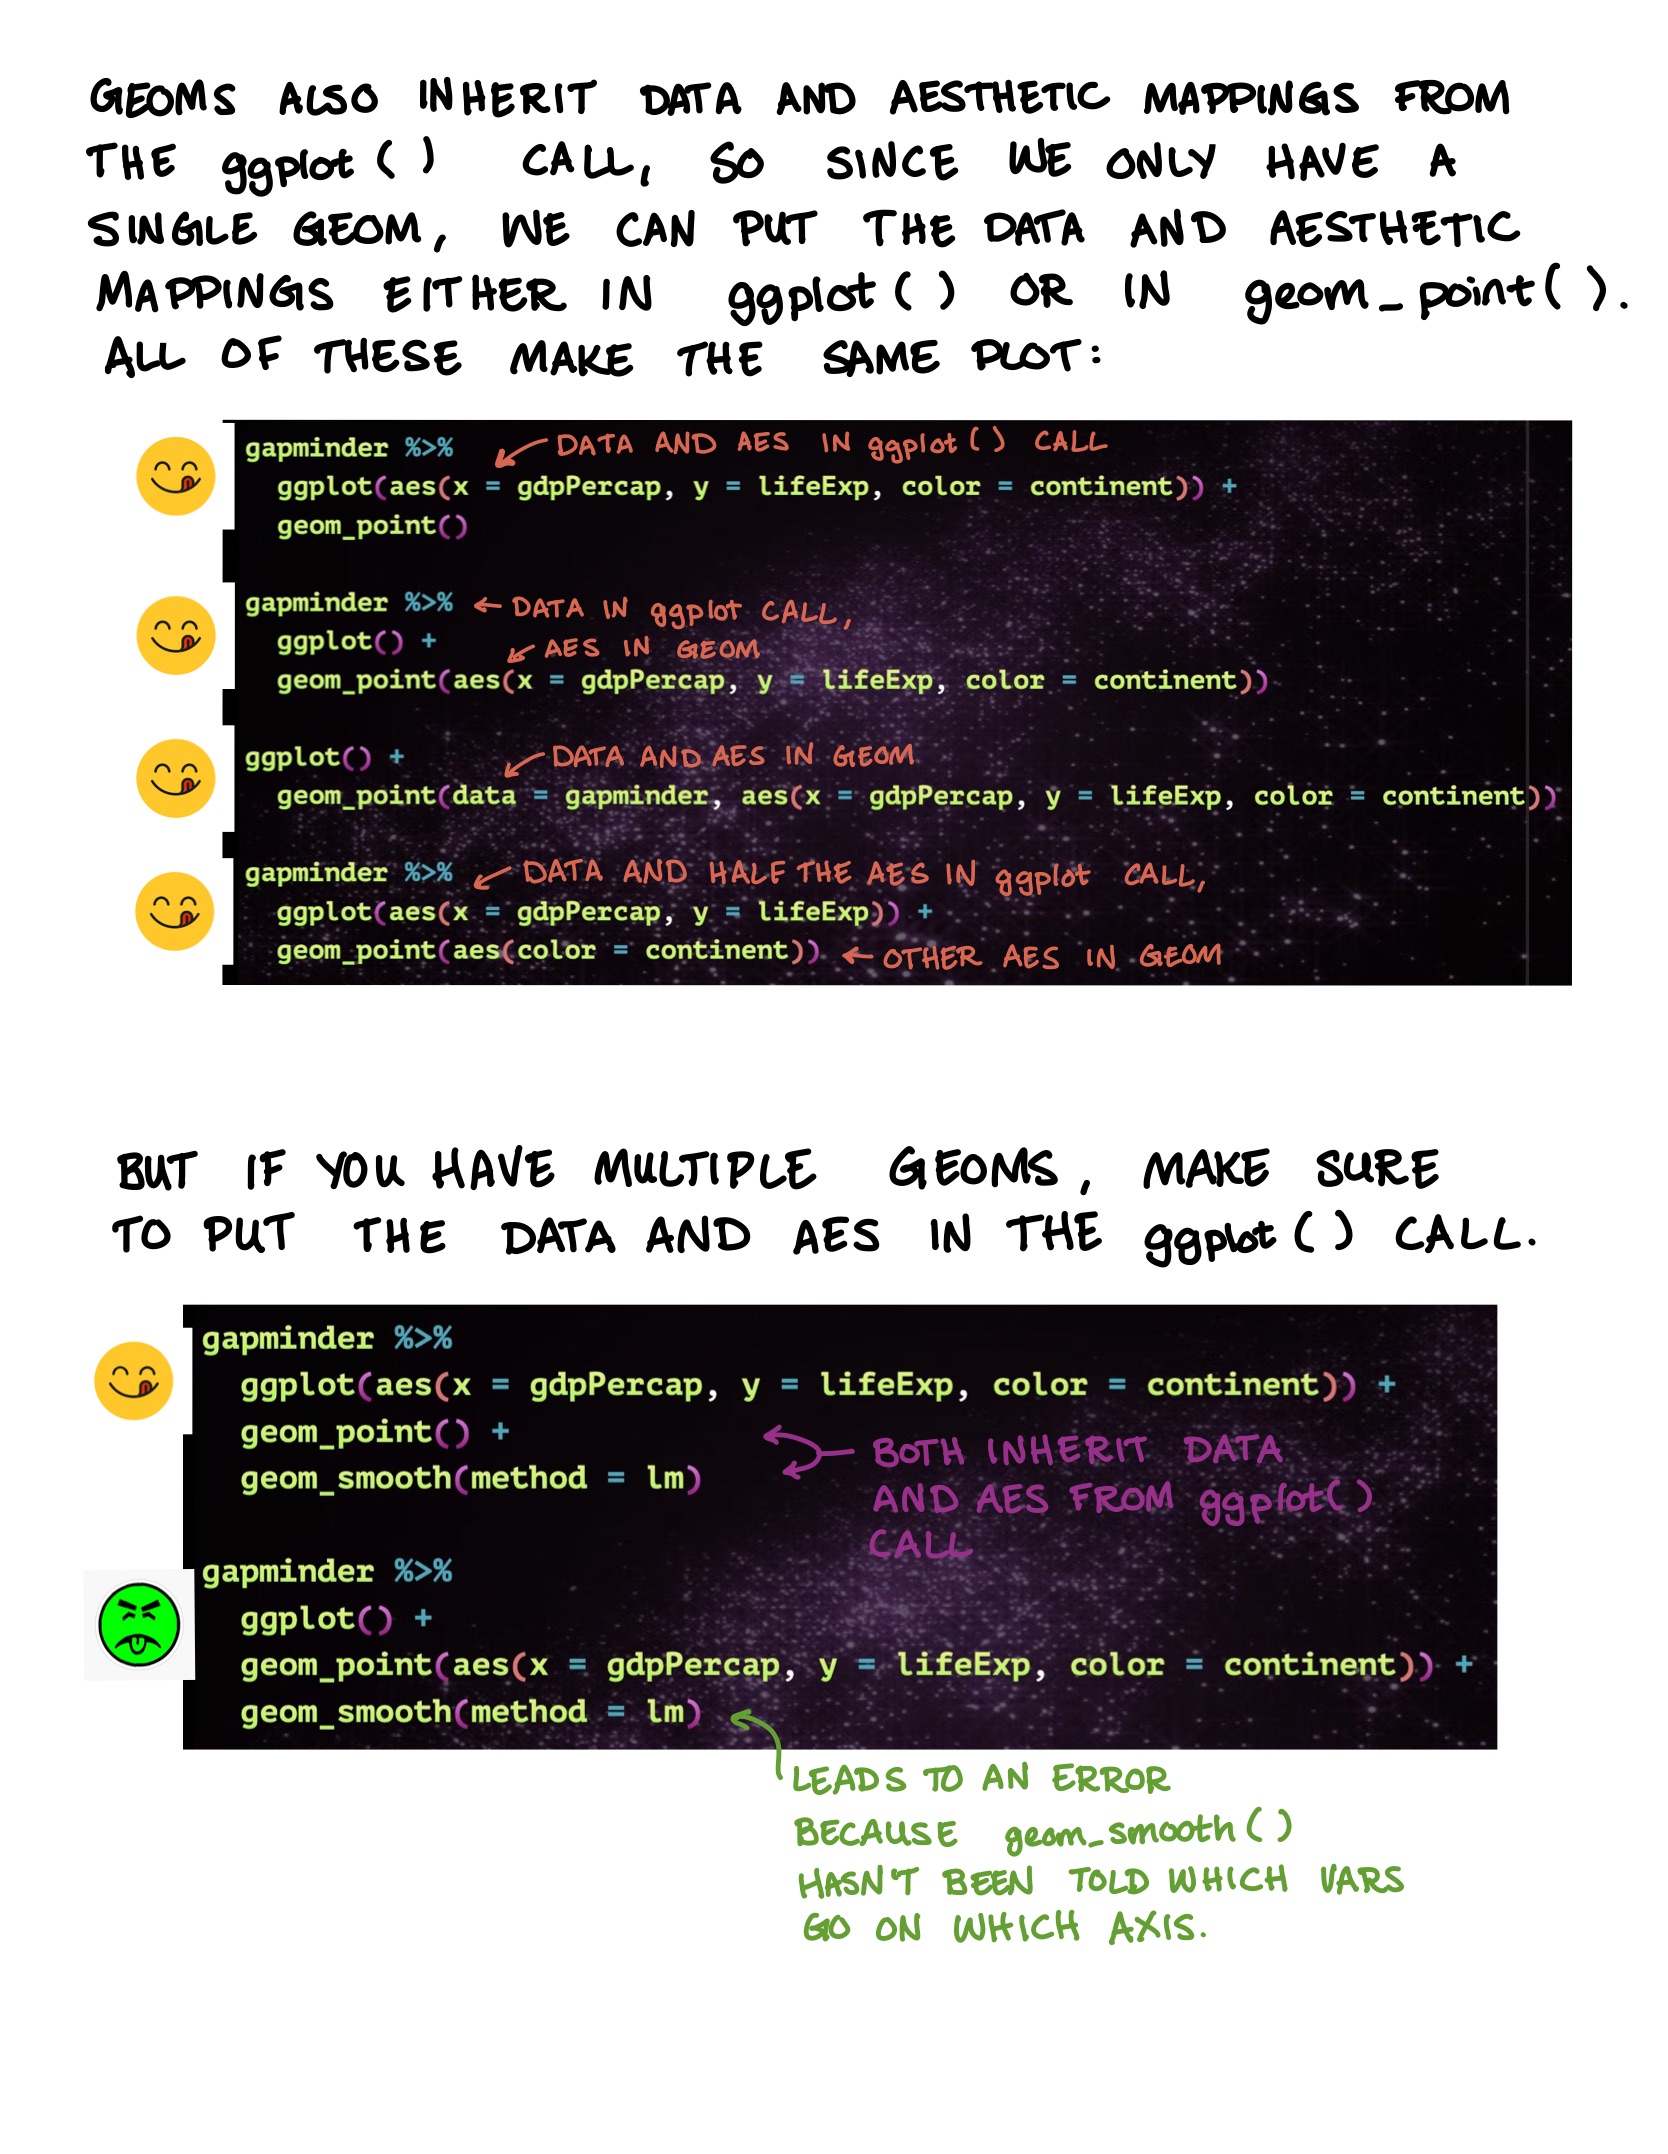 GEOMS ALSO INHERIT DATA AND AESTHETIC MAPPINGS FROM
THE ggplot() CALL, SO SINCE WE ONLY HAVE A
SINGLE GEOM, WE CAN PUT THE DATA AND AESTHETIC
MAPPINGS EITHER IN ggplot() OR IN geom_point().
ALL OF THESE MAKE THE SAME PLOT:
gapminder %>%
DATA AND AES IN ggplot() CALL
ggplot(aes(x = gdpPercap, y = lifeExp, color = continent)) +
geom_point()
gapminder %>%
DATA IN ggplot CALL,
ggplot() +
AES IN GEOM
geom_point(aes(x = gdpPercap, y = lifeExp, color = continent))
ggplot() +
DATA AND AES IN GEOM
geom_point(data = gapminder, aes(x = gdpPercap, y = lifeExp, color = continent))
gapminder %>%
DATA AND HALF THE AES IN ggplot CALL,
ggplot(aes(x = gdpPercap, y = lifeExp)) +
geom_point(aes(color = continent))
OTHER AES IN GEOM
BUT IF YOU HAVE MULTIPLE GEOMS, MAKE SURE
TO PUT THE DATA AND AES IN THE ggplot() CALL.
gapminder %>%
ggplot(aes(x = gdpPercap, y = lifeExp, color = continent)) +
geom_point() +
geom_smooth(method = lm)
BOTH INHERIT DATA
AND AES FROM ggplot()
CALL
gapminder %>%
ggplot() +
geom_point(aes(x = gdpPercap, y = lifeExp, color = continent)) +
geom_smooth(method = lm)
LEADS TO AN ERROR
BECAUSE geom_smooth()
HASN'T BEEN TOLD WHICH VARS
GO ON WHICH AXIS.